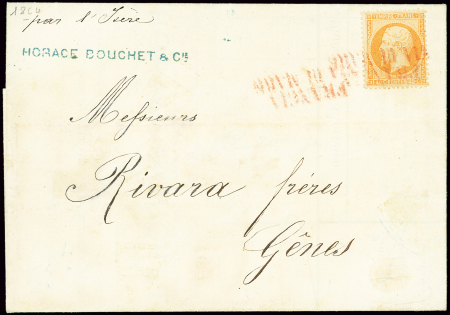 1864
par l'Isère
HORACE BOUCHET & Cie
EMPIRE FRANC.
Messieurs
Rivara frères
Gênes